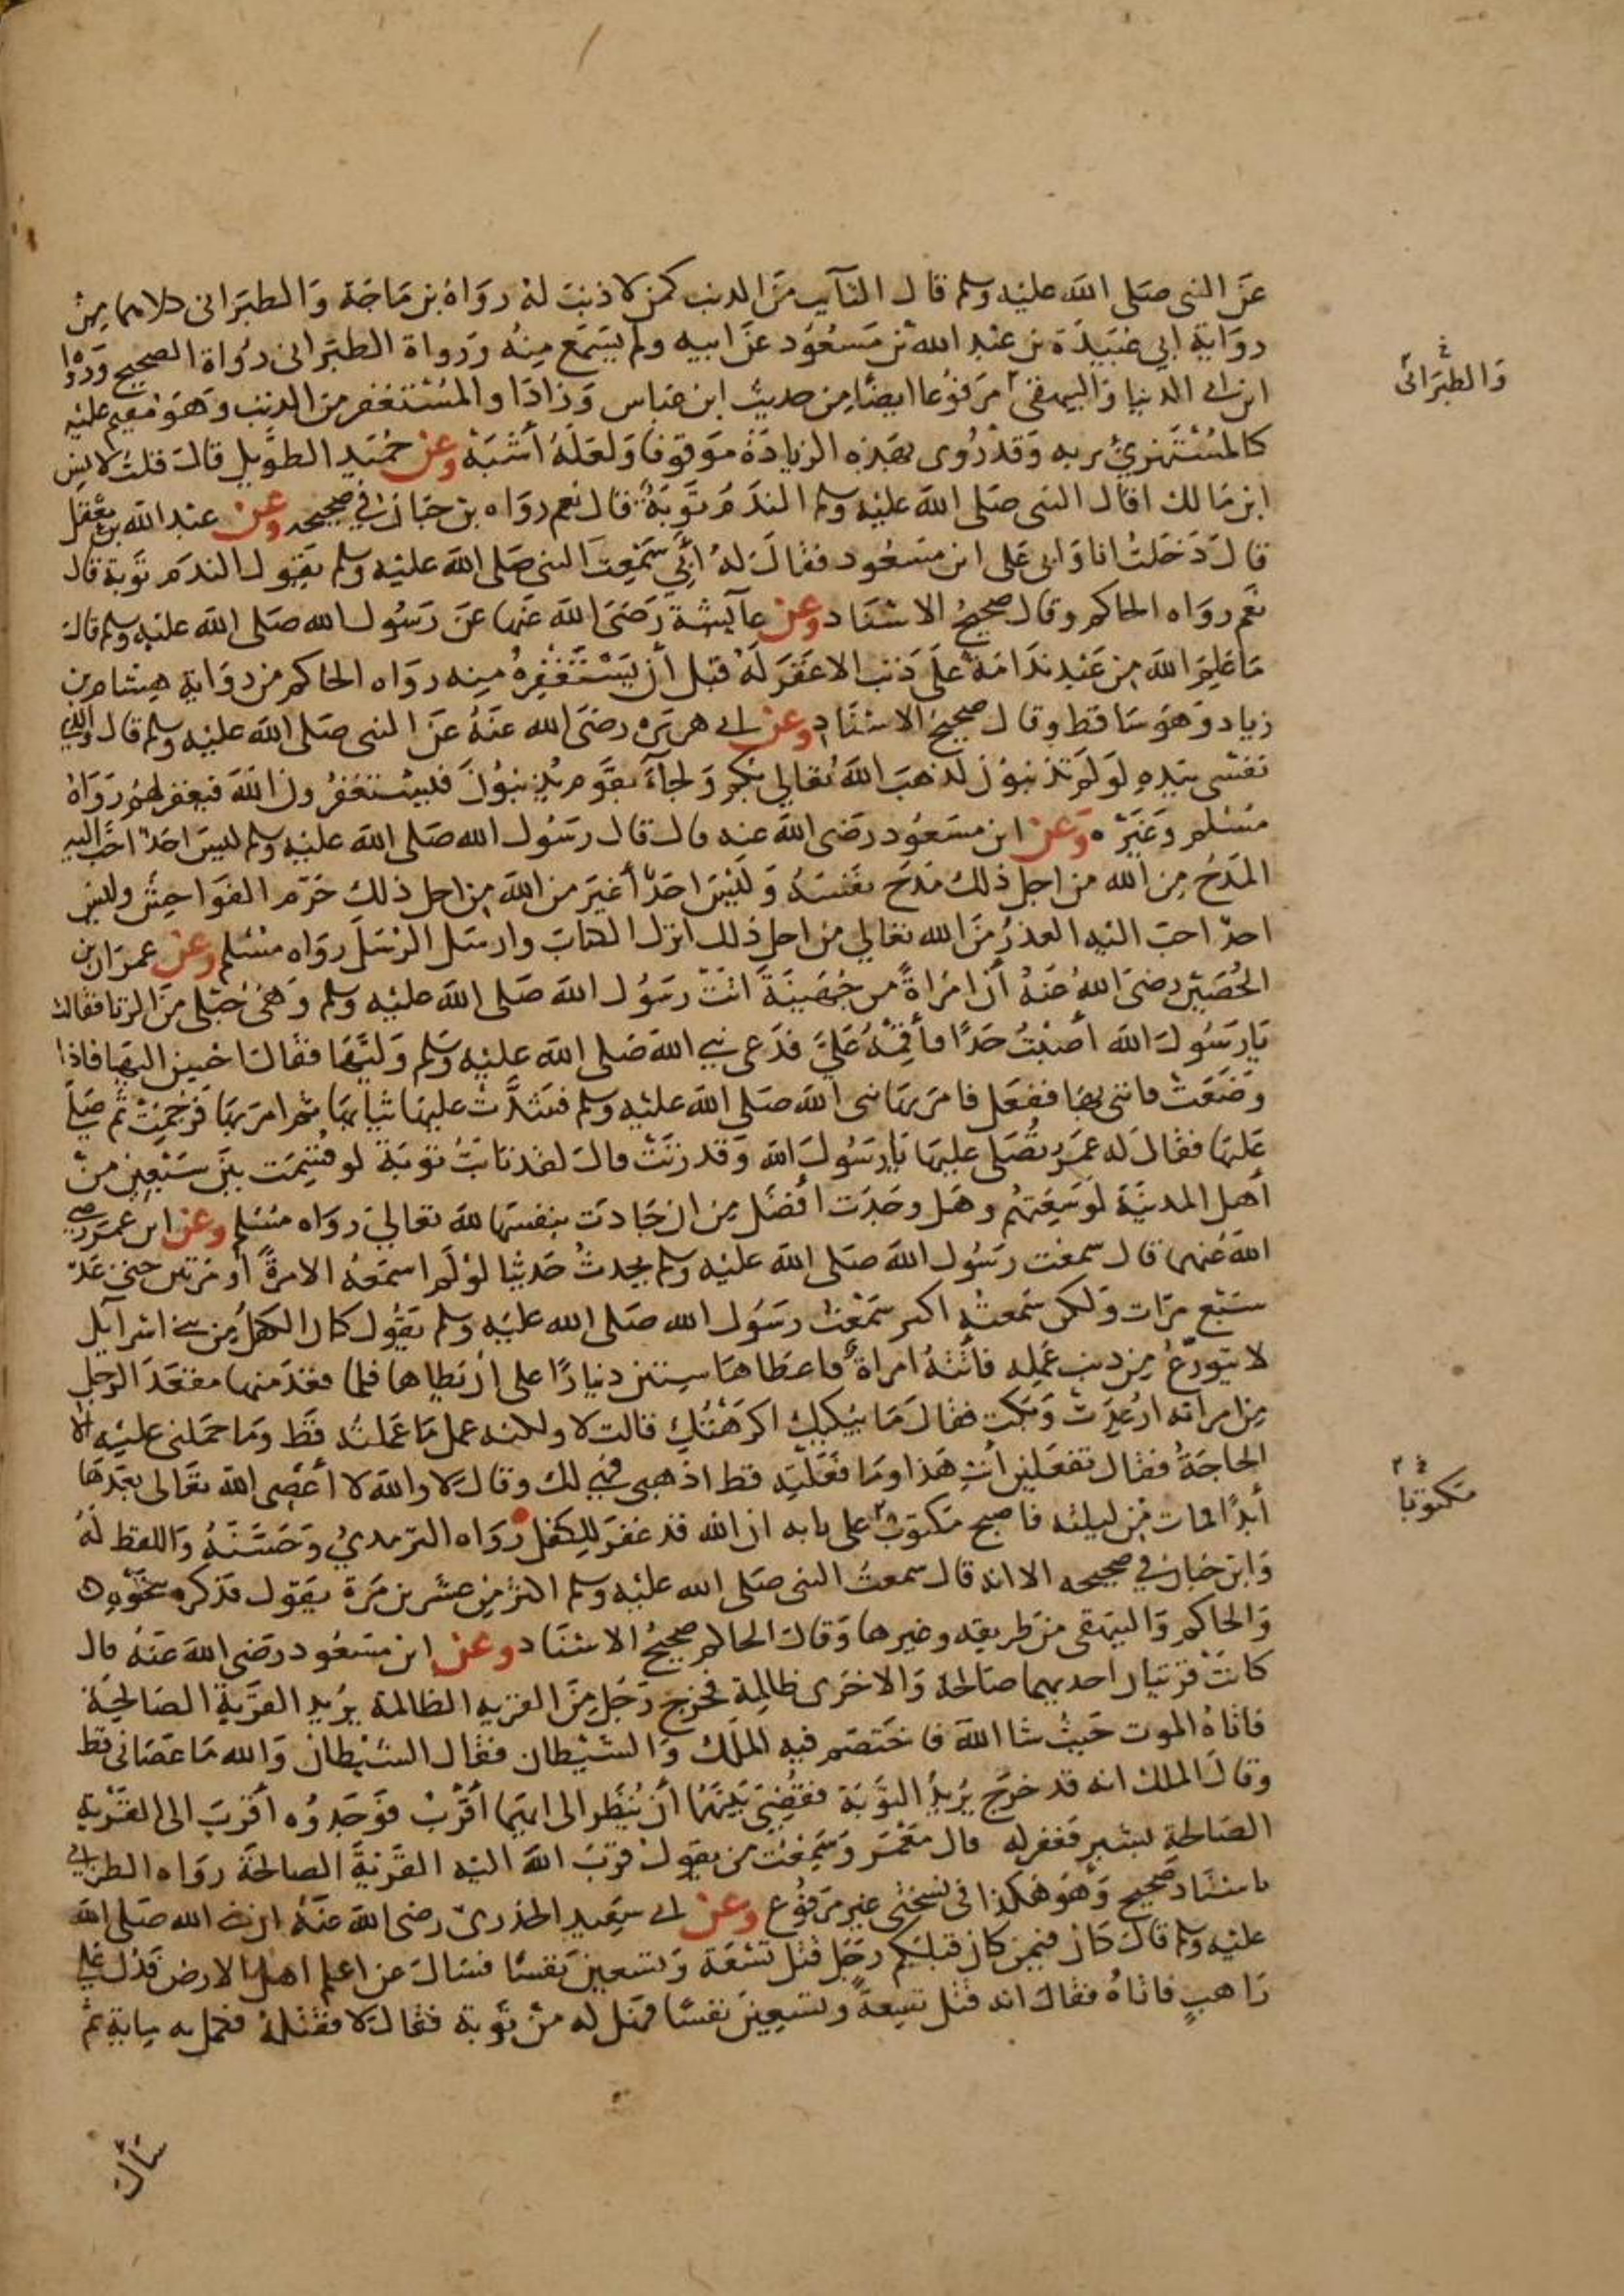 عن النبي صلى الله عليه وسلم قال التآيب من الذنب كمن لا ذنب له رواه بن ماجة والطبراني كلاهما من
رواية ابي عبيدة بن عبد الله بن مسعود عن ابيه ولم يسمع منه ورواة الطبراني رواة الصحيح ورواه
ابن ابي الدنيا والبيهقي مرفوعا ايضًا من حديث ابن عباس وزادا والمستغفر من الذنب وهو مقيم عليه
كالمستهزئ بربه وقد روى بهذه الزيادة موقوفا ولعله أشبه وعن حميد الطويل قال قلت لانس
ابن مالك اقال النبي صلى الله عليه وسلم الندم توبة قال نعم رواه بن حبان في صحيحه وعن عبد الله بن معقل
قال دخلت انا وابي على ابن مسعود فقال له أبي سمعت النبي صلى الله عليه وسلم يقول الندم توبة قال
نعم رواه الحاكم وقال صحيح الاسناد وعن عآيشة رضى الله عنها عن رسول الله صلى الله عليه وسلم قال
ما علم الله من عبد ندامة على ذنب الا غفر له قبل أن يستغفره منه رواه الحاكم من رواية هشام بن
زياد وهو ساقط وقال صحيح الاسناد وعن ابي هريرة رضى الله عنه عن النبي صلى الله عليه وسلم قال والذي
نفسي بيده لو لم تذنبون لذهب الله تعالى بكم ولجآء بقوم يذنبون فليستغفرون الله فيغفر لهم رواه
مسلم وغيره وعن ابن مسعود رضى الله عنه قال قال رسول الله صلى الله عليه وسلم ليس احد احب اليه
المدح من الله من اجل ذلك مدح نفسه وليس احد أغير من الله من اجل ذلك حرم الفواحش وليس
احد احب اليه العذر من الله تعالى من اجل ذلك انزل الكتاب وارسل الرسل رواه مسلم وعن عمران بن
الحصين رضى الله عنه أن امراة من جهينة اتت رسول الله صلى الله عليه وسلم وهى حبلى من الزنا فقالت
يا رسول الله أصبت حدًا فأقمه علي فدعى نبي الله صلى الله عليه وسلم وليها فقال احسن اليها فاذا
وضعت فاتني بها ففعل فامر بها نبي الله صلى الله عليه وسلم فشدت عليها ثيابها ثم امر بها فرجمت ثم صلى
عليها فقال له عمر تصلى عليها يا رسول الله وقد زنت قال لقد تابت توبة لو قسمت بين سبعين من
أهل المدينة لوسعتهم وهل وجدت أفضل من ان جادت بنفسها لله تعالى رواه مسلم وعن ابن عمر رضي
الله عنهما قال سمعت رسول الله صلى الله عليه وسلم يحدث حديثا لو لم اسمعه الا مرة أو مرتين حتى عد
سبع مرات ولكن سمعته اكثر سمعت رسول الله صلى الله عليه وسلم يقول كان الكفل من بني اسرآيل
لا يتورع من ذنب عمله فأتته امراة فاعطاها ستين دينارًا على أن يطاها فلما قعد منها مقعد الرجل
من امراته ارعدت وبكت فقال ما يبكيك اكرهتك قالت لا ولكنه عمل ما عملته قط وما حملني عليه الا
الحاجة فقال تفعلين أنت هذا وما فعلتيه قط اذهبي فهي لك وقال لا والله لا أعصى الله تعالى بعدها
أبدًا فمات من ليلته فاصبح مكتوب على بابه ان الله قد غفر للكفل رواه الترمذي وحسنه واللفظ له
وابن حبان في صحيحه الا انه قال سمعت النبي صلى الله عليه وسلم اكثر من عشرين مرة يقول فذكره بنحوه
والحاكم والبيهقى من طريقه وغيرها وقال الحاكم صحيح الاسناد وعن ابن مسعود رضى الله عنه قال
كانت قريتان احديهما صالحة والاخرى ظالمة فخرج رجل من القرية الظالمة يريد القرية الصالحة
فاتاه الموت حيث شا الله فاختصم فيه الملك والشيطان فقال الشيطان والله ما عصاني قط
وقال الملك انه قد خرج يريد التوبة فقضي بينهما أن ينظر الى ايهما أقرب فوجدوه أقرب الى القرية
الصالحة بشبر فغفر له قال معمر وسمعت من يقول قرب الله اليه القرية الصالحة رواه الطبراني
باسناد صحيح وهو هكذا في نسختي غير مرفوع وعن ابي سعيد الخدري رضى الله عنه ان نبي الله صلى الله
عليه وسلم قال كان فيمن كان قبلكم رجل قتل تسعة وتسعين نفسًا فسال عن اعلم اهل الارض فدل على
راهب فاتاه فقال انه قتل تسعة وتسعين نفسًا فهل له من توبة فقال لا فقتله فكمل به ماية ثم
سال
والطبراني
مكتوبا